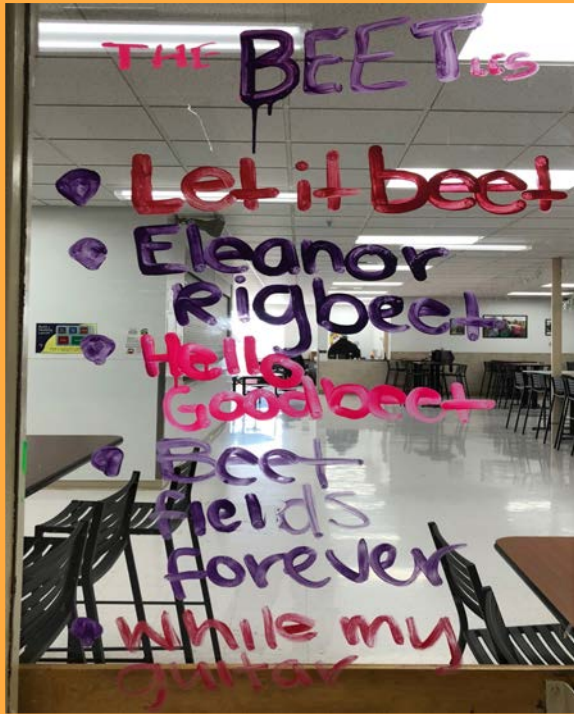 THE BEETLES
Let it beet
Eleanor
Rigbeet
Hello
Goodbeet
Beet
fields
forever
While my
guitar